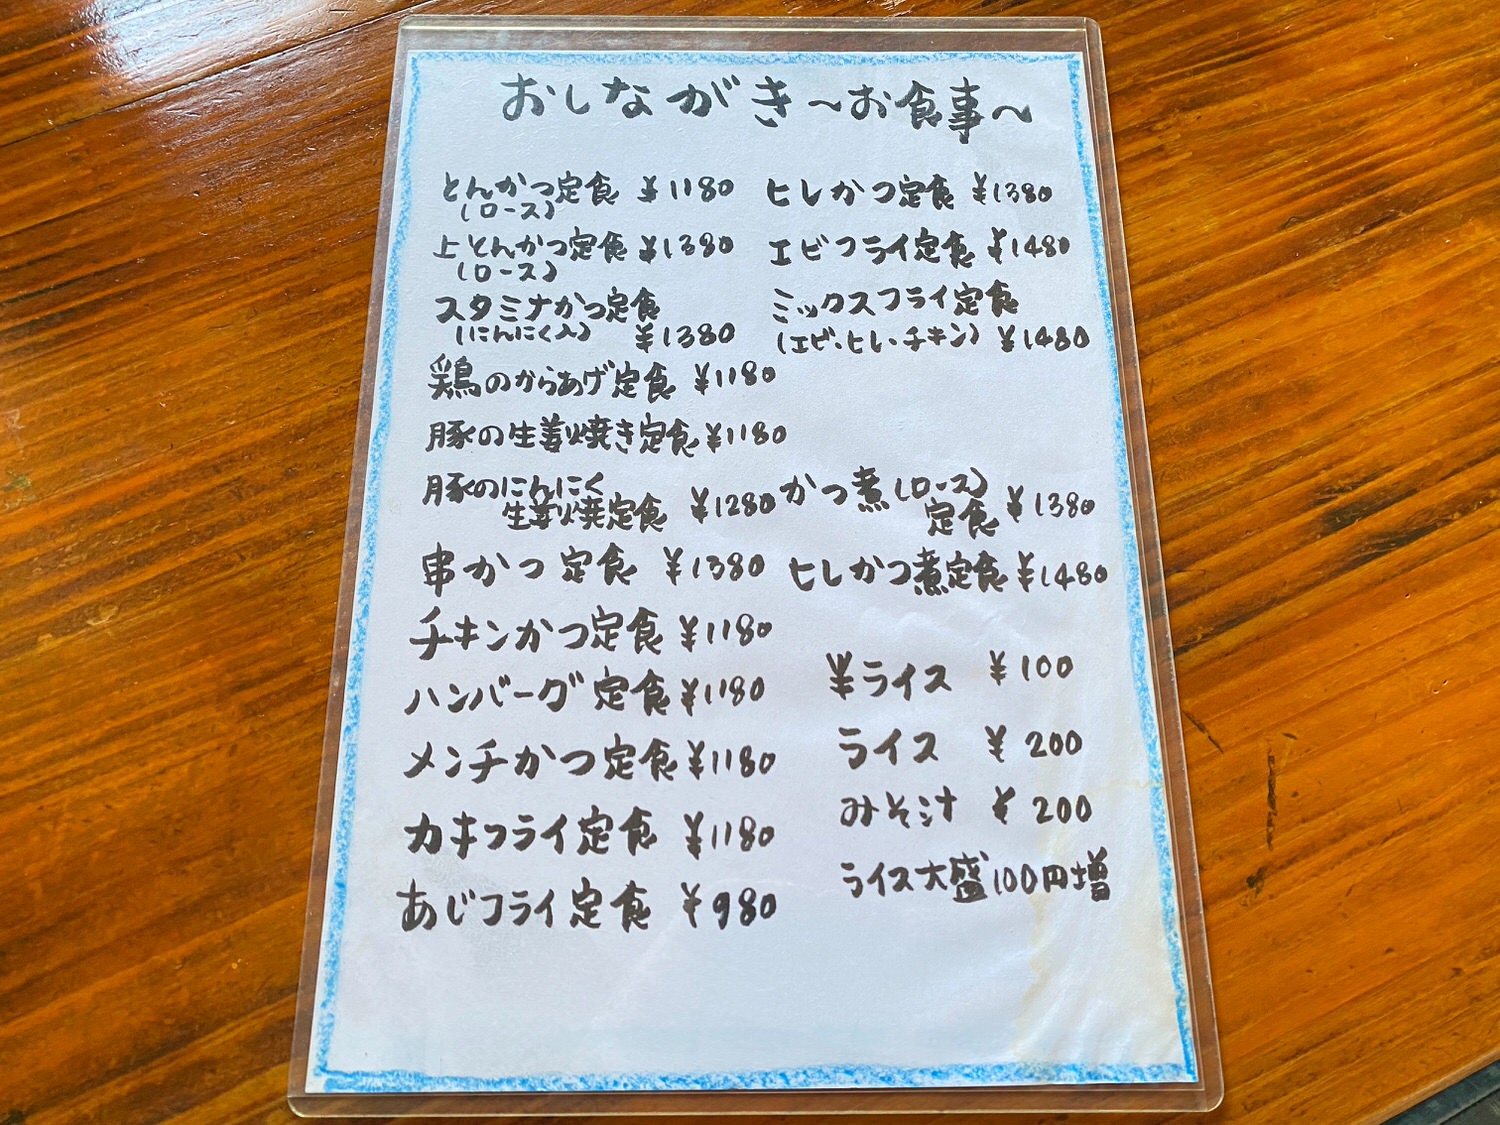 おしながき～お食事～
とんかつ定食 ¥1180
(ロース)
上とんかつ定食 ¥1380
(ロース)
スタミナかつ定食
(にんにく入) ¥1380
鶏のからあげ定食 ¥1180
豚の生姜焼き定食 ¥1180
豚のにんにく
生姜焼定食 ¥1280
串かつ定食 ¥1380
チキンかつ定食 ¥1180
ハンバーグ定食 ¥1180
メンチかつ定食 ¥1180
カキフライ定食 ¥1180
あじフライ定食 ¥980
ヒレかつ定食 ¥1380
エビフライ定食 ¥1480
ミックスフライ定食
(エビ・ヒレ・チキン) ¥1480
かつ煮(ロース)
定食 ¥1380
ヒレかつ煮定食 ¥1480
半ライス ¥100
ライス ¥200
みそ汁 ¥200
ライス大盛100円増